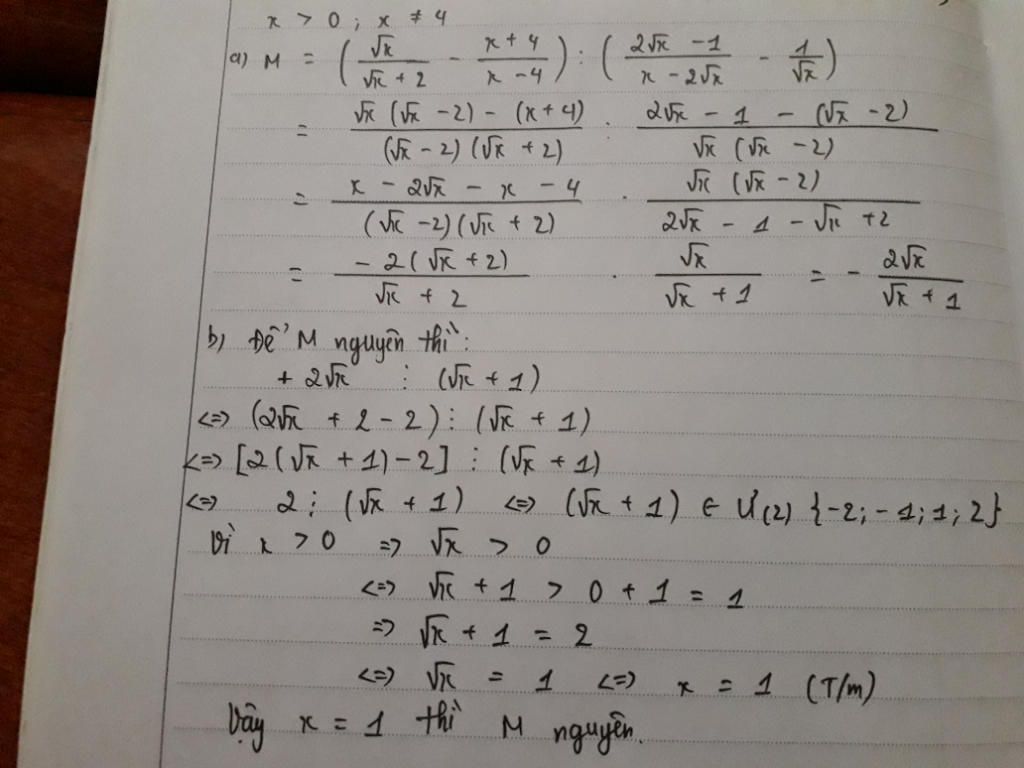 x > 0 ; x ≠ 4
a) M = (√x/(√x + 2) - (x + 4)/(x - 4)) : ((2√x - 1)/(x - 2√x) - 1/√x)
= (√x (√x - 2) - (x + 4))/((√x - 2)(√x + 2)) : (2√x - 1 - (√x - 2))/(√x (√x - 2))
= (x - 2√x - x - 4)/((√x - 2)(√x + 2)) . (√x (√x - 2))/(2√x - 1 - √x + 2)
= (-2(√x + 2))/(√x + 2) . √x/(√x + 1) = - 2√x/(√x + 1)
b) Để M nguyên thì:
+ 2√x ⋮ (√x + 1)
<=> (2√x + 2 - 2) ⋮ (√x + 1)
<=> [2(√x + 1) - 2] ⋮ (√x + 1)
<=> 2 ⋮ (√x + 1) <=> (√x + 1) ∈ Ư(2) {-2; -1; 1; 2}
Vì x > 0 => √x > 0
<=> √x + 1 > 0 + 1 = 1
=> √x + 1 = 2
<=> √x = 1 <=> x = 1 (T/m)
Vậy x = 1 thì M nguyên.